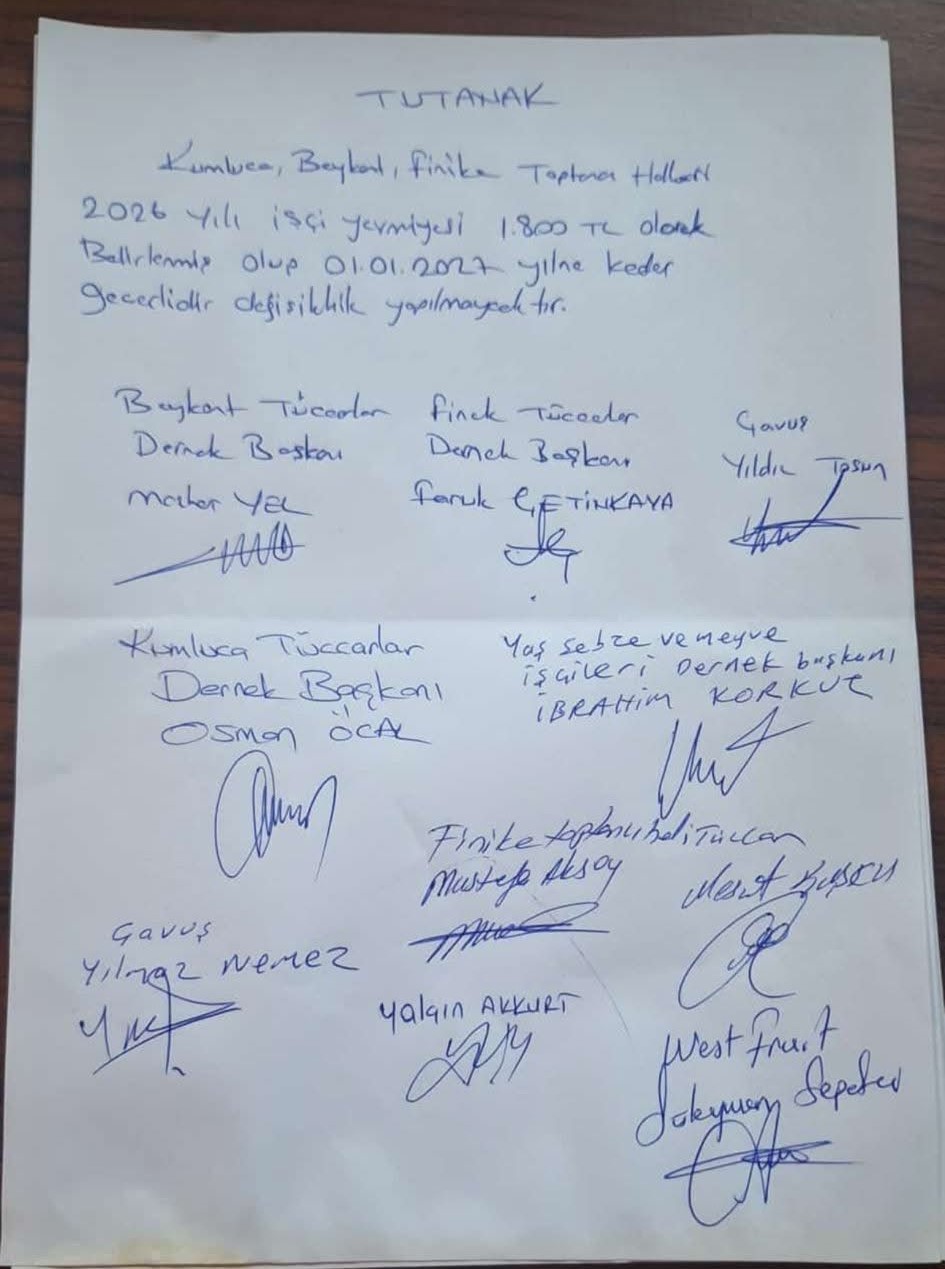 TUTANAK
Kumluca, Beykont, Finike Toptancı Halleri
2026 yılı işçi yevmiyesi 1.800 TL olarak
Belirlenmiş olup 01.01.2027 yılına kadar
gecerlidir değişiklik yapılmayacaktır.
Beykont Tüccarlar
Dernek Başkanı
YEL
Finek Tüccarlar
Dernek Başkanı
Faruk ÇETİNKAYA
Çavuş
Tosun
Kumluca Tüccarlar
Dernek Başkanı
Osman ÖCAL
Yaş Sebze ve meyve
işçileri Dernek başkanı
İBRAHİM KORKUT
Finike toptancı hali Tüccarı
Mustafa Aksoy
Mesut
Çavuş
Yılmaz NEMEZ
Yalçın AKKURT
West Fruit
Süleyman Sepetçi